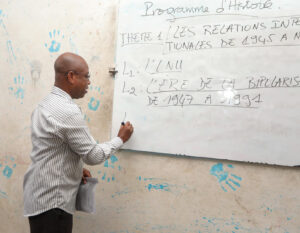 Programme d'Histoire
THEME 1: LES RELATIONS INTE
TIONALES DE 1945 A N
L1: L'ONU
L2: L'ERE DE LA BIPOLARIS
DE 1947 A 1991